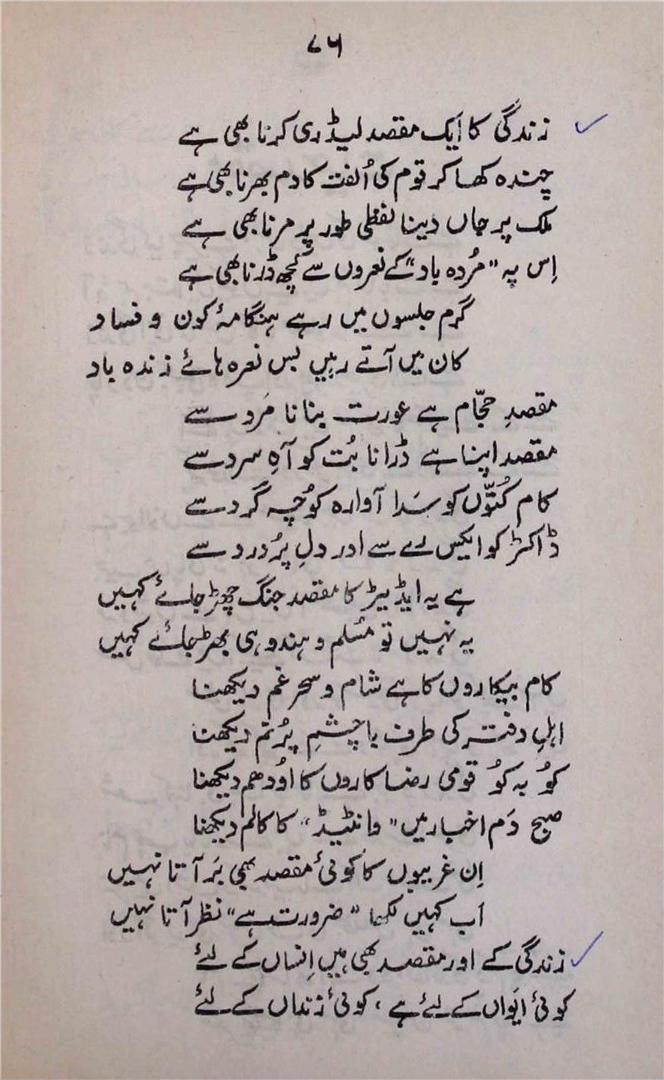 ۷۶
زندگی کا اَیک مقصد لیڈری کرنا بھی ہے
چندہ کھا کر قوم کی اُلفت کا دم بھرنا بھی ہے
ملک پر جاں دینا لفظی طور پر مرنا بھی ہے
اِس پہ "مُردہ باد" کے نعروں سے کُچھ ڈرنا بھی ہے
گرم جلسوں میں رہے ہنگامۂ کون و فساد
کان میں آتے رہیں بس نعرہ ہائے زندہ باد
مقصدِ حجّام ہے عورت بنانا مَرد سے
مقصد اپنا ہے ڈرانا بُت کو آہِ سرد سے
کام کُتّوں کو سَدا آوارہ کوُچہ گرد سے
ڈاکٹر کو ایکس رے سے اور دلِ پُر درد سے
ہے یہ ایڈیٹر کا مقصد جنگ چھڑ جائے کہیں
یہ نہیں تو مُسلم و ہندو ہی بھڑ جائے کہیں
کام بیکاروں کا ہے شام و سحر غم دیکھنا
اہلِ دفتر کی طرف با چشمِ پُر نم دیکھنا
کوُ بہ کوُ قومی رضا کاروں کا اوُدھم دیکھنا
صبح دَم اخبار میں "وانٹیڈ" کا کالم دیکھنا
اِن غریبوں کا کوئی مقصد بھی بَر آتا نہیں
اَب کہیں لکھا "ضرورت ہے" نظر آتا نہیں
زندگی کے اور مقصد بھی ہیں اِنساں کے لئے
کوئی ایَواں کے لیئے ہے، کوئی زنداں کے لئے